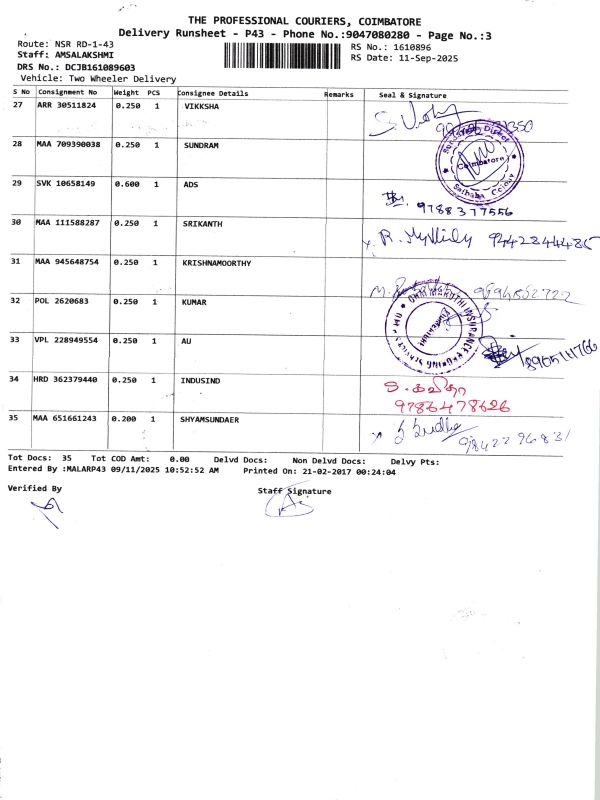 THE PROFESSIONAL COURIERS, COIMBATORE
Delivery Runsheet - P43 - Phone No.:9047080280 - Page No.:3
Route: NSR RD-1-43
RS No.: 1610896
Staff: AMSALAKSHMI
RS Date: 11-Sep-2025
DRS No.: DCJB161089603
Vehicle: Two Wheeler Delivery
S No Consignment No Weight PCS Consignee Details Remarks Seal & Signature
27 ARR 30511824 0.250 1 VIKKSHA
28 MAA 709390038 0.250 1 SUNDRAM
Coimbatore
29 SVK 10658149 0.600 1 ADS
9788377556
30 MAA 111588287 0.250 1 SRIKANTH
9442844485
31 MAA 945648754 0.250 1 KRISHNAMOORTHY
32 POL 2620683 0.250 1 KUMAR
33 VPL 228949554 0.250 1 AU
34 HRD 362379440 0.250 1 INDUSIND
S. கவிதா
9786478626
35 MAA 651661243 0.200 1 SHYAMSUNDAER
9842296831
Tot Docs: 35 Tot COD Amt: 0.00 Delvd Docs: Non Delvd Docs: Delvy Pts:
Entered By :MALARP43 09/11/2025 10:52:52 AM Printed On: 21-02-2017 00:24:04
Verified By
Staff Signature